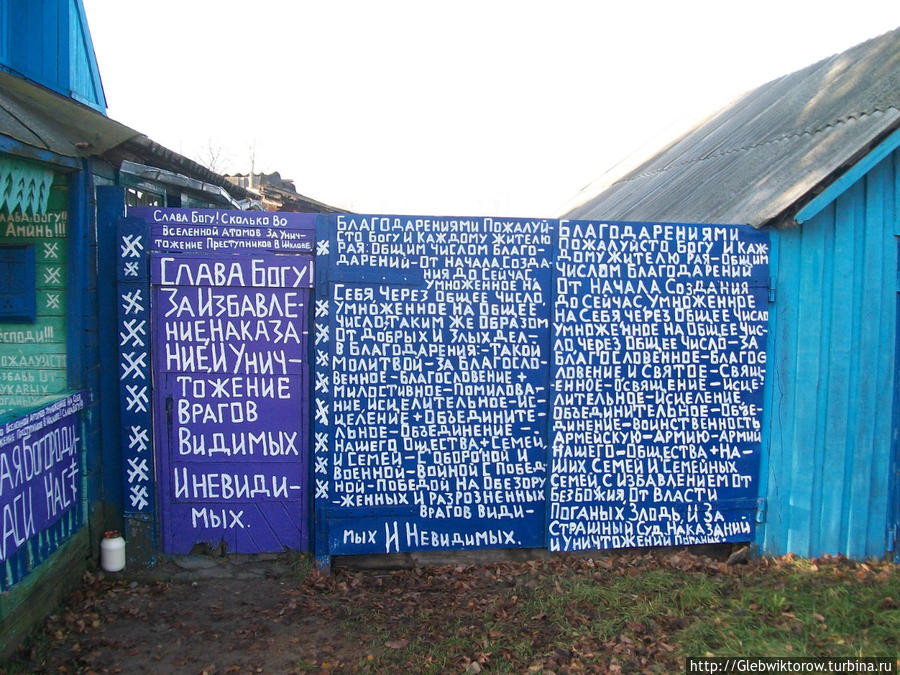 СЛАВА БОГУ!!!
АМИНЬ!!!
ГОСПОДИ!!!
ПОЖАЛУЙ
СЛАВА БОГУ! СКОЛЬКО ВО
ВСЕЛЕННОЙ АТОМОВ ЗА УНИЧ-
ТОЖЕНИЕ ПРЕСТУПНИКОВ В ШКЛОВЕ.
СЛАВА БОГУ!
ЗА ИЗБАВЛЕ-
НИЕ, НАКАЗА
НИЕ, И УНИЧ-
ТОЖЕНИЕ
ВРАГОВ
ВИДИМЫХ
И НЕВИДИ-
МЫХ.
БЛАГОДАРЕНИЯМИ ПОЖАЛУЙ-
СТО БОГУ И КАЖДОМУ ЖИТЕЛЮ
РАЯ: ОБЩИМ ЧИСЛОМ БЛАГО-
ДАРЕНИЙ-ОТ НАЧАЛА СОЗДА-
НИЯ ДО СЕЙЧАС
УМНОЖЕННОЕ НА
СЕБЯ ЧЕРЕЗ ОБЩЕЕ ЧИСЛО,
УМНОЖЕННОЕ НА ОБЩЕЕ
ЧИСЛО; ТАКИМ ЖЕ ОБРАЗОМ
ОТ ДОБРЫХ И ЗЛЫХ ДЕЛ-
В БЛАГОДАРЕНИЯ:-ТАКОЙ
МОЛИТВОЙ-ЗА БЛАГОСЛО-
ВЕННОЕ-БЛАГОСЛОВЕНИЕ
МИЛОСТИВНОЕ-ПОМИЛОВА-
НИЕ, ИСЦЕЛИТЕЛЬНОЕ-ИС-
ЦЕЛЕНИЕ+ОБЪЕДИНИТЕ-
ЛЬНОЕ-ОБЪЕДИНЕНИЕ-
НАШЕГО ОБЩЕСТВА+СЕМЕЙ
И СЕМЕЙ-С ОБОРОНОЙ И
ВОЕННОЙ-ВОЙНОЙ С ПОБЕД-
НОЙ-ПОБЕДОЙ НА ОБЕЗОРУ
-ЖЕННЫХ И РАЗРОЗНЕННЫХ
ВРАГОВ ВИДИ-
МЫХ И НЕВИДИМЫХ.
БЛАГОДАРЕНИЯМИ
ПОЖАЛУЙСТО БОГУ И КАЖ-
ДОМУ ЖИТЕЛЮ РАЯ-ОБЩИМ
ЧИСЛОМ БЛАГОДАРЕНИЙ
ОТ НАЧАЛА СОЗДАНИЯ
ДО СЕЙЧАС УМНОЖЕННОЕ
НА СЕБЯ ЧЕРЕЗ ОБЩЕЕ ЧИСЛО
УМНОЖЕННОЕ НА ОБЩЕЕ ЧИС-
ЛО ЧЕРЕЗ ОБЩЕЕ ЧИСЛО-ЗА
БЛАГОСЛОВЕННОЕ-БЛАГОС
ЛОВЕНИЕ И СВЯТОЕ-СВЯЩ-
ЕННОЕ-ОСВЯЩЕНИЕ-ИСЦЕ-
ЛИТЕЛЬНОЕ-ИСЦЕЛЕНИЕ
ОБЪЕДИНИТЕЛЬНОЕ-ОБЪЕ-
ДИНЕНИЕ-ВОИНСТВЕННОСТЬ
АРМЕЙСКУЮ-АРМИЮ-АРМИЙ
НАШЕГО-ОБЩЕСТВА+НА-
ШИХ СЕМЕЙ И СЕМЕЙНЫХ
СЕМЕЙ С ИЗБАВЛЕНИЕМ ОТ
БЕЗБОЖИЯ, ОТ ВЛАСТИ
ПОГАНЫХ ЗЛОДЬ, И ЗА
СТРАШНЫЙ СУД, НАКАЗАНИЙ
И УНИЧТОЖЕНИЙ
http://Glebwiktorow.turbina.ru/